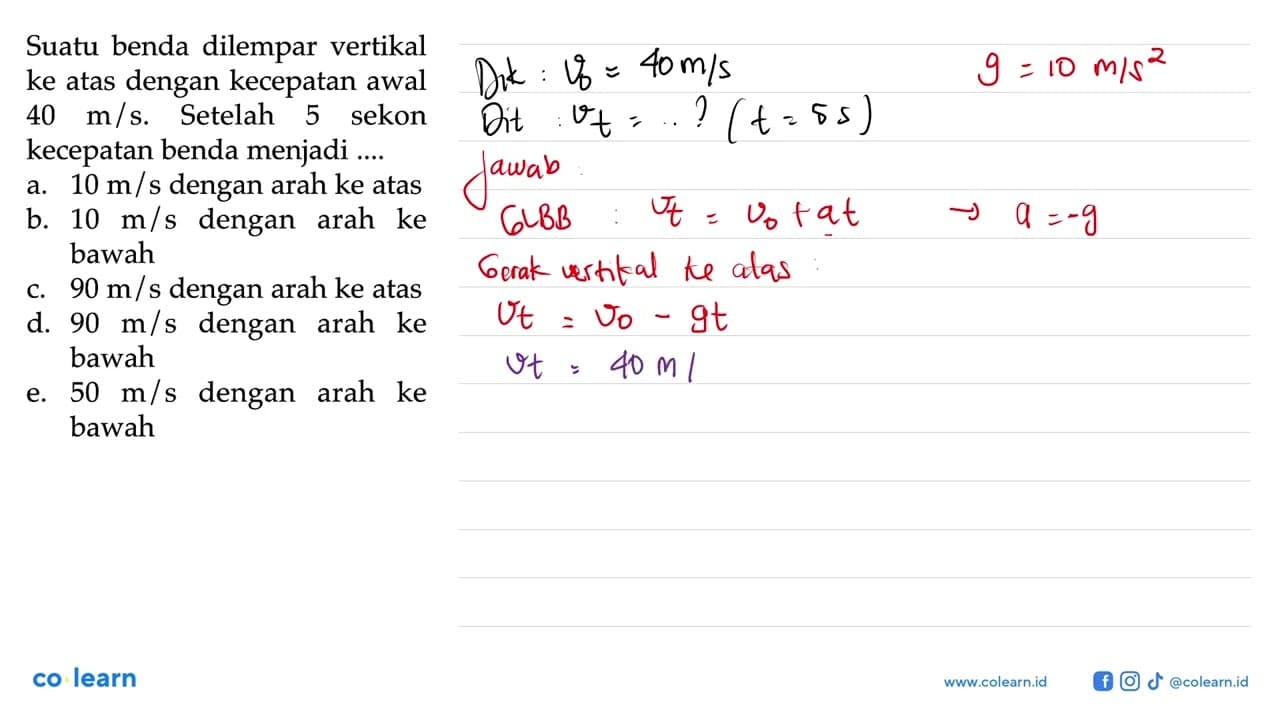 Suatu benda dilempar vertikal
ke atas dengan kecepatan awal
40 m/s. Setelah 5 sekon
kecepatan benda menjadi ....
a. 10 m/s dengan arah ke atas
b. 10 m/s dengan arah ke
bawah
c. 90 m/s dengan arah ke atas
d. 90 m/s dengan arah ke
bawah
e. 50 m/s dengan arah ke
bawah
Dik : v₀ = 40 m/s
g = 10 m/s²
Dit : vt = ..? (t = 5 s)
Jawab :
GLBB : vt = v₀ + at → a = -g
Gerak vertikal ke atas :
vt = v₀ - gt
vt = 40 m/
co learn
www.colearn.id
@colearn.id